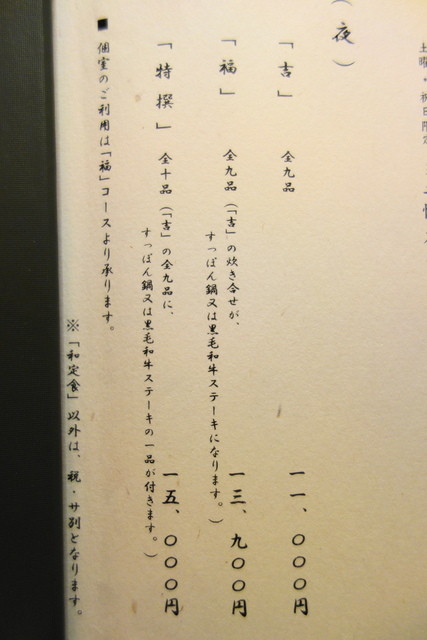 （夜）
「吉」　全九品　一一、〇〇〇円
「福」　全九品（「吉」の炊き合せが、
すっぽん鍋又は黒毛和牛ステーキになります。）　一三、九〇〇円
「特撰」　全十品（「吉」の全九品に、
すっぽん鍋又は黒毛和牛ステーキの一品が付きます。）　一五、〇〇〇円
■ 個室のご利用は「福」コースより承ります。
※「和定食」以外は、税・サ別となります。